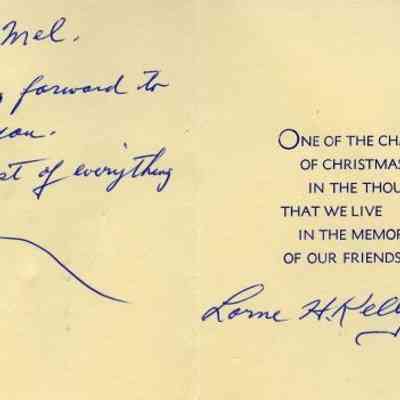 Mel.
forward to
you.
st of everything
ONE OF THE CHA
OF CHRISTMAS
IN THE THOU
THAT WE LIVE
IN THE MEMOR
OF OUR FRIENDS
Lorne H. Kelly